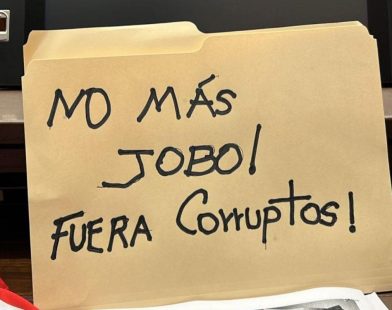 NO MÁS
JOBO!
FUERA Corruptos!